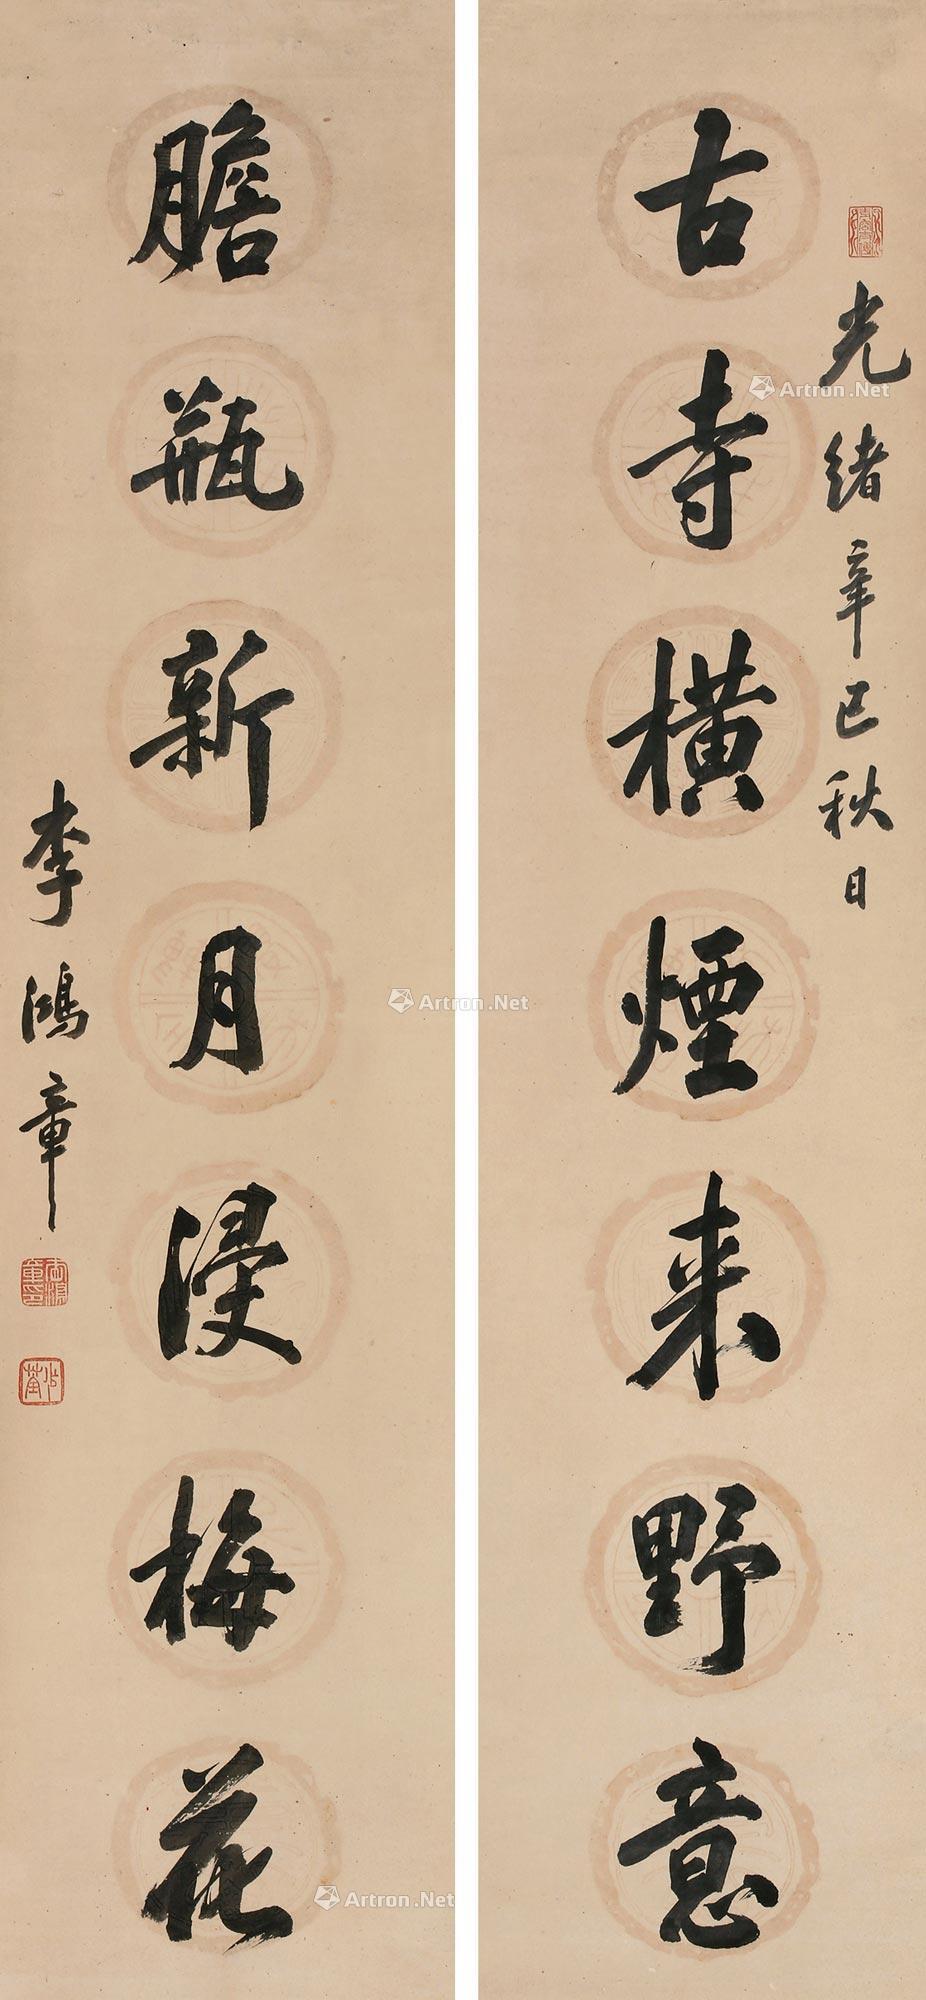 光緒辛巳秋日
古寺橫煙來野意
膽瓶新月浸梅花
李鴻章
少荃
Artron.Net
Artron.Net
Artron.Net